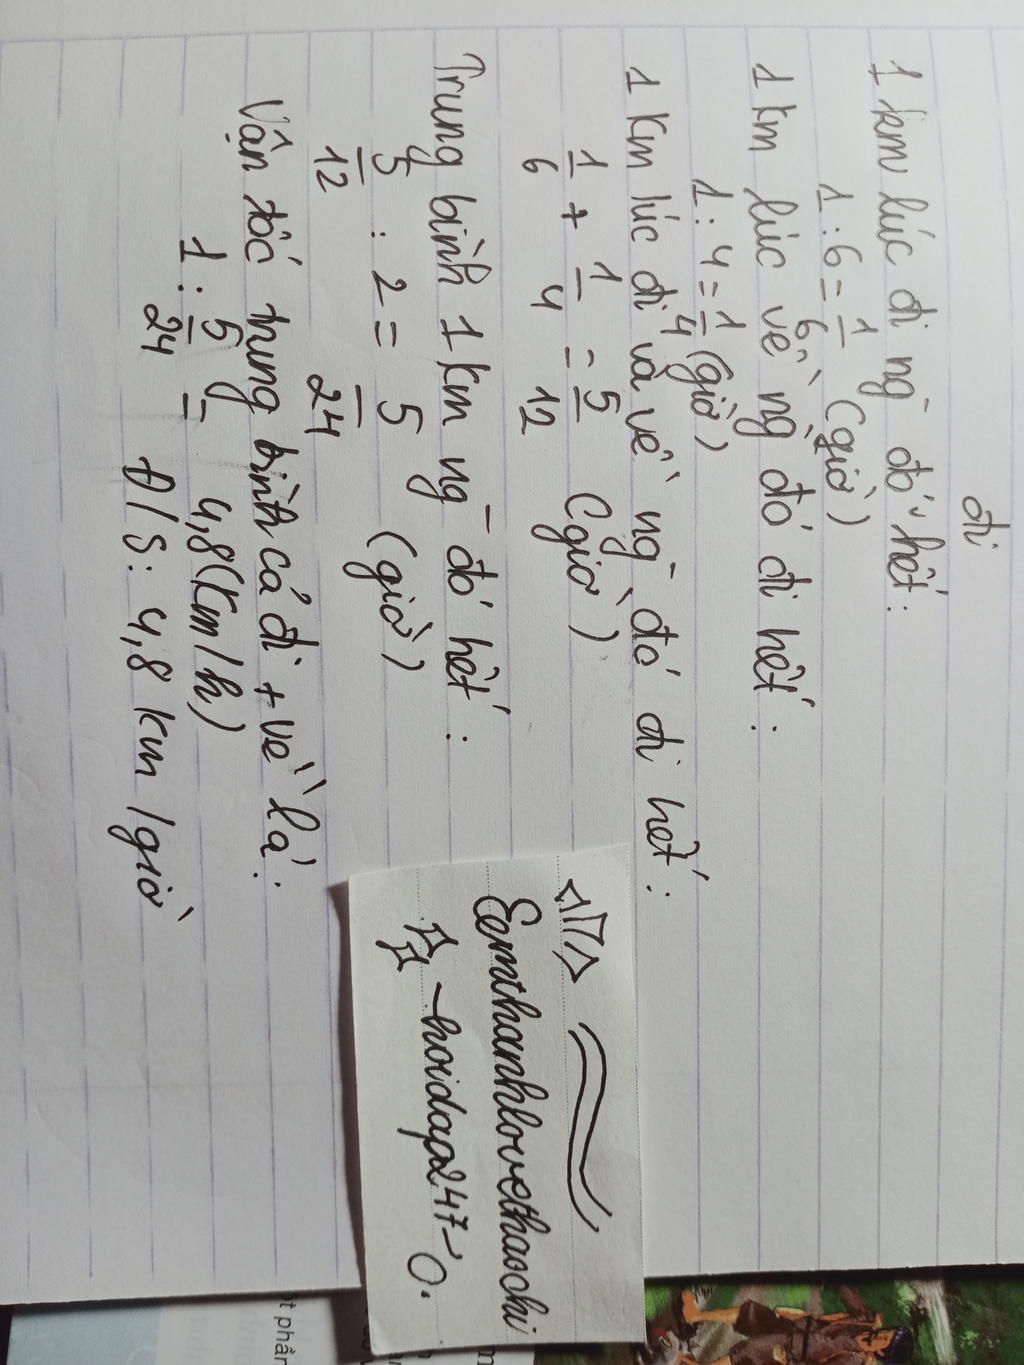 đi
1 km lúc đi ng` đó hết:
1 : 6 = 1/6 (giờ)
1 km lúc về ng` đó đi hết:
1 : 4 = 1/4 (giờ)
1 km lúc đi và về ng` đó đi hết:
1/6 + 1/4 = 5/12 (giờ)
Trung bình 1 km ng` đó hết:
5/12 : 2 = 5/24 (giờ)
Vận tốc trung bình cả đi + về là:
1 : 5/24 = 4,8 (km/h)
Đ/S: 4,8 km/giờ
Eemthanhlovethaochi
-hoidap247-